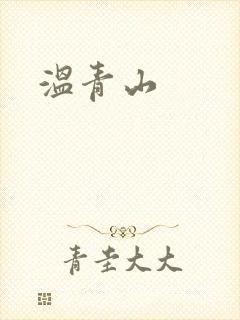 温青山
青圭大大